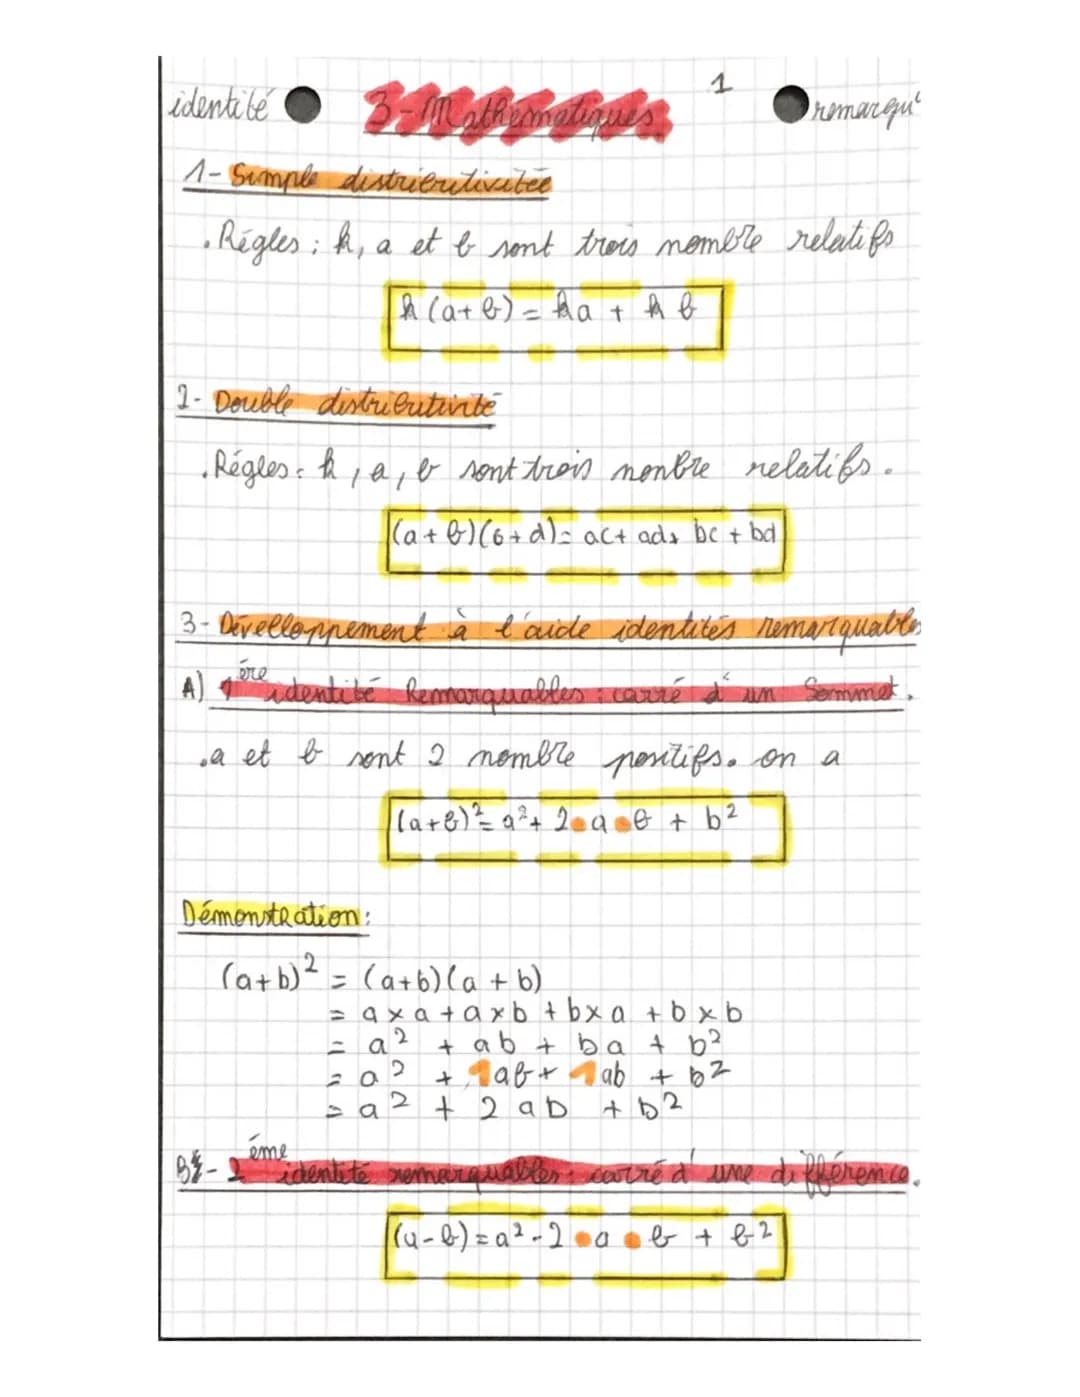 identité 3-Mathématiques 1 remarqu
1- Simple distributivitée
. Régles : k, a et b sont trois nombre relatifs
k (a+b) = ka + k b
2- Double distributivité
. Régles : k , a , b sont trois nonbre relatifs.
(a + b)(c + d) = ac + ad + bc + bd
3- Dévelloppement à l'aide identités remarquables
A) 1ère identité Remarquables : carré d'un Sommet.
. a et b sont 2 nombre positifs. on a
(a+b)² = a² + 2•a•b + b²
Démonstration :
(a+b)² = (a+b)(a + b)
= a×a + a×b + b×a + b×b
= a² + ab + ba + b²
= a² + 1ab + 1ab + b²
= a² + 2 ab + b²
B - 2éme identité remarquables : carré d'une différence.
(a-b) = a² - 2•a•b + b²